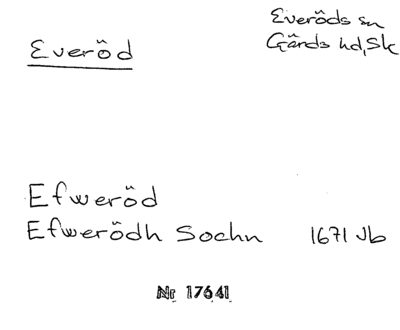 Everöd
Everöds sn
Gärds hd, Sk
Efweröd
Efwerödh Sochn 1671 Jb
Nr 17641